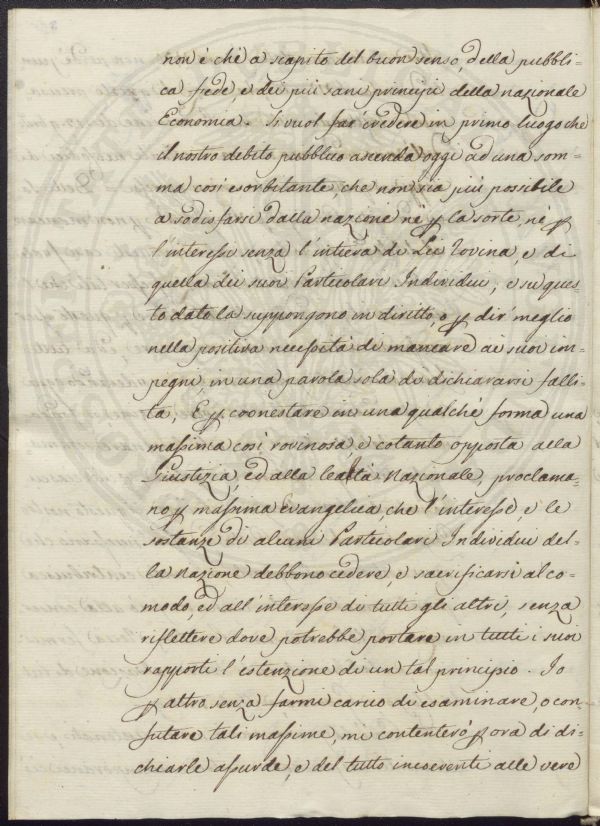 non è che a scapito del buon senso, della pubbli-
ca fede e dei più sani principj della nazionale
Economia. Si vuol far credere in primo luogo che
il nostro debito pubblico ascenda oggi ad una som-
ma così esorbitante, che non sia più possibile
a sodisfarsi dalla nazione nè p la sorte, nè p
l'interesse senza l'intiera di Lei rovina, e di
quella dei suoi Particolari Individui, e su ques-
to dato la suppongono in diritto, o p dir meglio
nella positiva necessità di mancare ai suoi im-
pegni, in una parola sola di dichiararsi falli-
ta, E p coonestare in una qualche forma una
massima così rovinosa, e cotanto opposta alla
Giustizia, ed alla lealtà Nazionale, proclama-
no p massima Evangelica, che l'interesse, e le
sostanze di alcuni Particolari Individui del-
la Nazione debbono cedere, e sacrificarsi al co-
modo, ed all'interesse di tutti gli altri, senza
riflettere dove potrebbe portare in tutti i suoi
rapporti l'estenzione di un tal principio. Io
p altro senza farmi carico di esaminare, o con-
futare tali massime, mi contenterò p ora di di-
chiarle assurde, e del tutto incoerenti alle vere